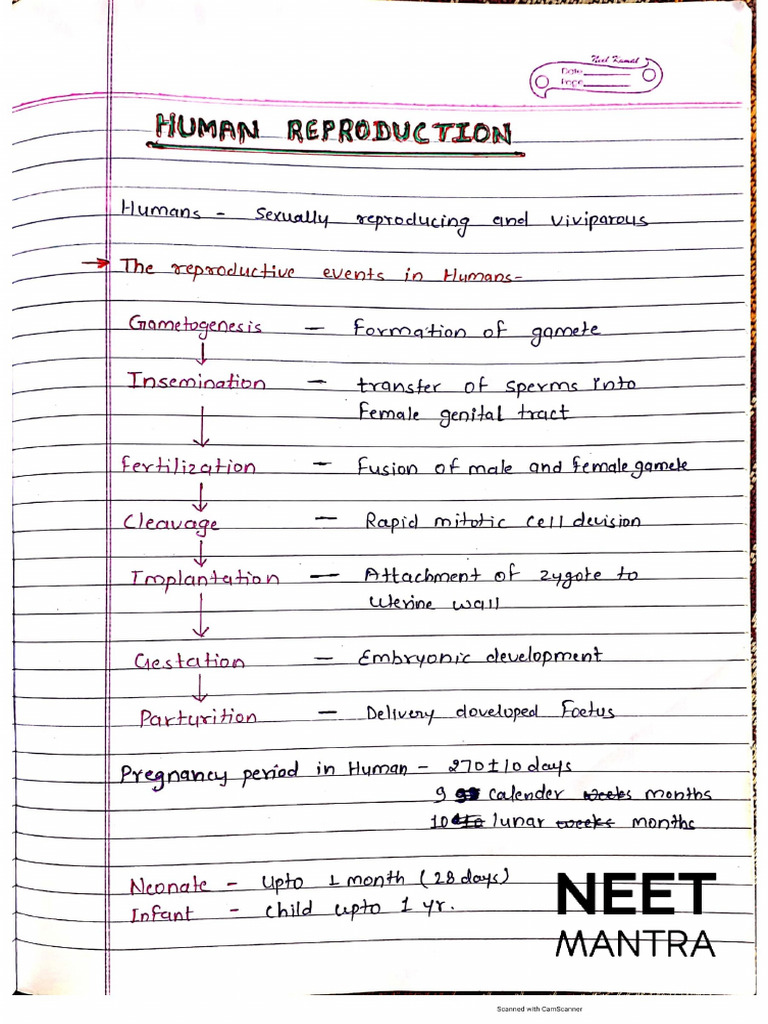 Neel Kamal
Date
Page
HUMAN REPRODUCTION
Humans - Sexually reproducing and viviparous
→ The reproductive events in Humans-
Gametogenesis — Formation of gamete
↓
Insemination — transfer of sperms into
Female genital tract
↓
Fertilization — Fusion of male and female gamete
↓
Cleavage — Rapid mitotic cell devision
↓
Implantation — Attachment of zygote to
Uterine wall
↓
Gestation — Embryonic development
↓
Parturition — Delivery doveloped Foetus
Pregnancy period in Human - 270±10 days
9 calender weeks months
10 lunar weeks months
Neonate - Upto 1 month (28 days)
Infant - child upto 1 yr.
NEET
MANTRA
Scanned with CamScanner